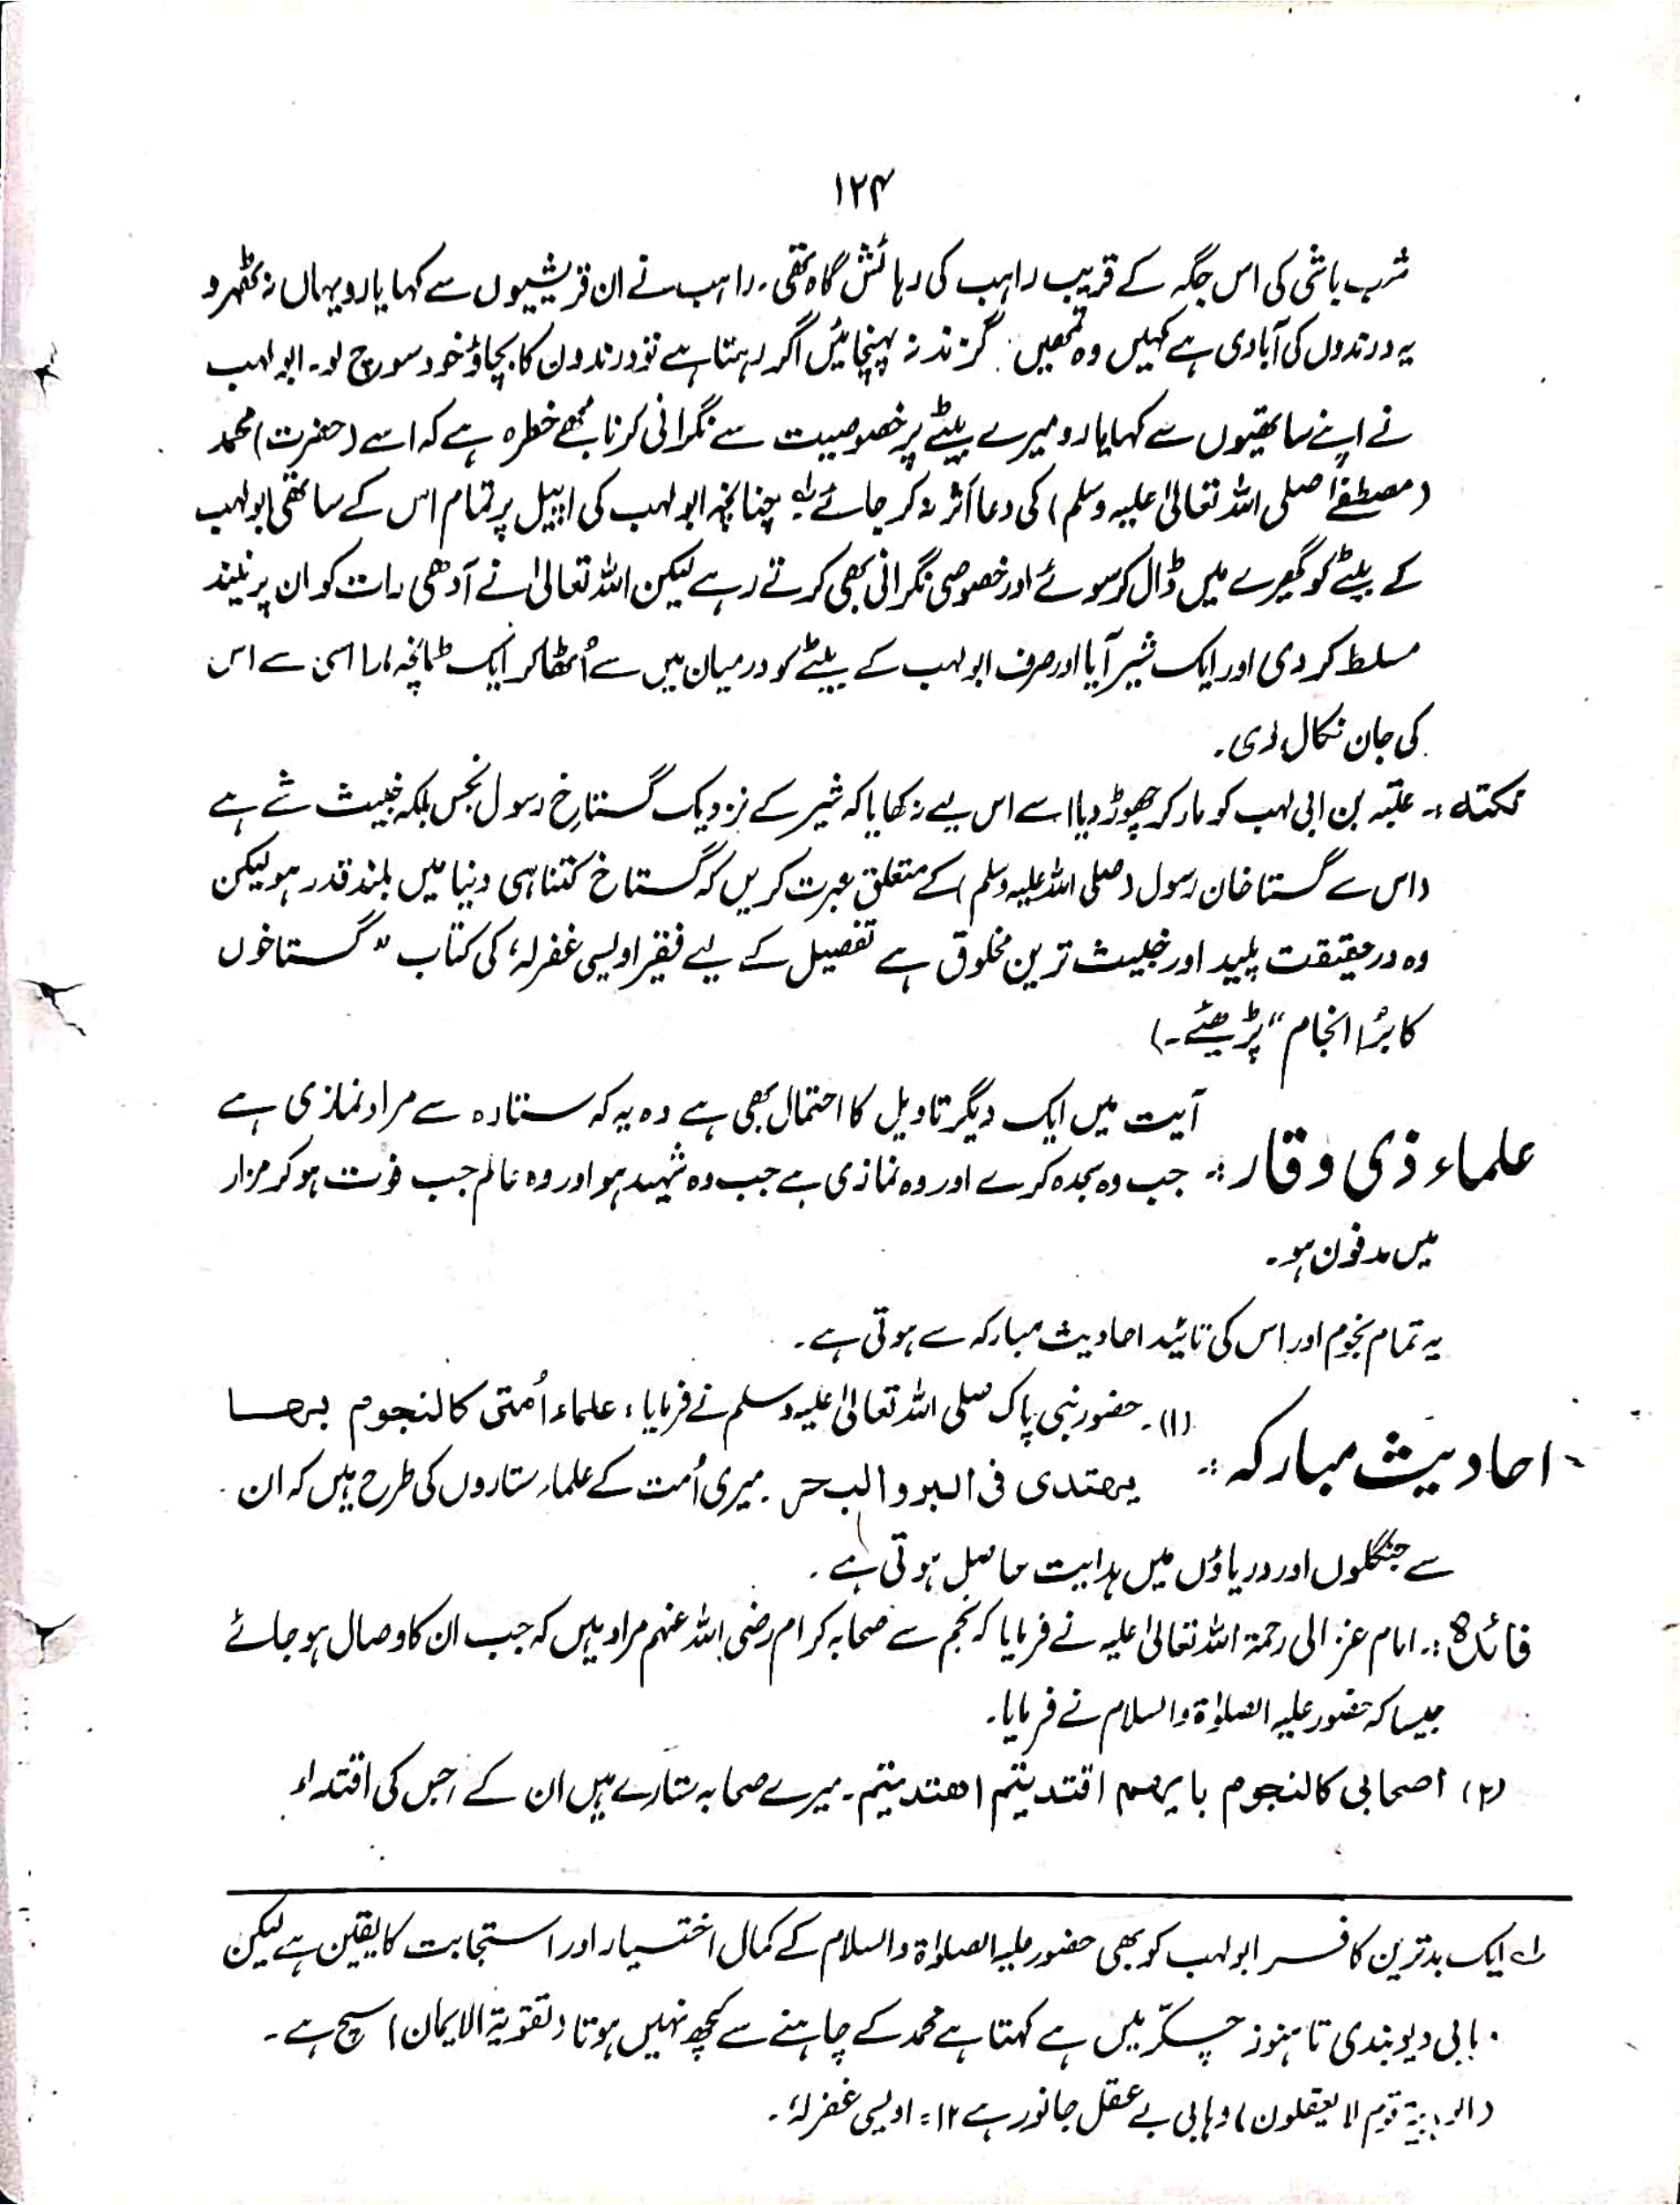 ۱۲۴
شب باشی کی اس جگہ کے قریب راہب کی رہائش گاہ تھی۔ راہب نے ان قریشیوں سے کہا یارو یہاں نہ ٹھہرو
یہ درندوں کی آبادی ہے کہیں وہ تمھیں گزند نہ پہنچائیں اگر رہنا ہے تو درندوں کا بچاؤ خود سوچ لو۔ ابولہب
نے اپنے ساتھیوں سے کہا یارو میرے بیٹے پر خصوصیت سے نگرانی کرنا مجھے خطرہ ہے کہ اسے (حضرت) محمد
(مصطفےٰ صلی اللہ تعالیٰ علیہ وسلم) کی دعا اثر نہ کر جائے لے چنانچہ ابولہب کی اپیل پر تمام اس کے ساتھی ابولہب
کے بیٹے کو گھیرے میں ڈال کر سوئے اور خصوصی نگرانی بھی کرتے رہے لیکن اللہ تعالیٰ نے آدھی رات کو ان پر نیند
مسلط کر دی اور ایک شیر آیا اور صرف ابولہب کے بیٹے کو درمیان میں سے اُٹھا کر ایک طمانچہ مارا اسی سے اس
کی جان نکال دی۔
نکتہ :۔ عتبہ بن ابی لہب کو مار کر چھوڑ دیا اسے اس لیے نہ کھایا کہ شیر کے نزدیک گستاخِ رسول نجس بلکہ خبیث شے ہے
(اس سے گستاخان رسول (صلی اللہ علیہ وسلم) کے متعلق عبرت کریں کہ گستاخ کتنا ہی دنیا میں بلند قدر ہو لیکن
وہ درحقیقت پلید اور خبیث ترین مخلوق ہے تفصیل کے لیے فقیر اویسی غفرلہٗ کی کتاب ”گستاخوں
کا بُرا انجام“ پڑھئے۔)
آیت میں ایک دیگر تاویل کا احتمال بھی ہے وہ یہ کہ ستارہ سے مراد نمازی ہے
علماء ذی وقار :۔ جب وہ سجدہ کرے اور وہ نمازی ہے جب وہ شہید ہو اور وہ عالم جب فوت ہو کر مزار
میں مدفون ہو۔
یہ تمام نجوم اور اس کی تائید احادیث مبارکہ سے ہوتی ہے۔
(۱)۔ حضور نبی پاک صلی اللہ تعالیٰ علیہ وسلم نے فرمایا، علماء اُمتی کالنجوم بھا
احادیث مبارکہ :۔ یھتدی فی البر والبحر۔ میری اُمت کے علماء ستاروں کی طرح ہیں کہ ان
سے جنگلوں اور دریاؤں میں ہدایت حاصل ہوتی ہے۔
فائدہ :۔ امام غزالی رحمۃ اللہ تعالیٰ علیہ نے فرمایا کہ نجم سے صحابہ کرام رضی اللہ عنہم مراد ہیں کہ جب ان کا وصال ہو جائے
جیسا کہ حضور علیہ الصلوٰۃ والسلام نے فرمایا۔
(۲) اصحابی کالنجوم بایھم اقتدیتم اھتدیتم۔ میرے صحابہ ستارے ہیں ان کے جس کی اقتداء
لے ایک بدترین کافر ابولہب کو بھی حضور علیہ الصلوٰۃ والسلام کے کمال اختیار اور استجابت کا یقین ہے لیکن
دیوبندی تا ہنوز چکّر میں ہے کہتا ہے محمد کے چاہنے سے کچھ نہیں ہوتا (تقویۃ الایمان) سچ ہے۔
(الوہابیۃ قوم لا یعقلون) وہابی بے عقل جانور ہے ۱۲= اویسی غفرلہٗ۔